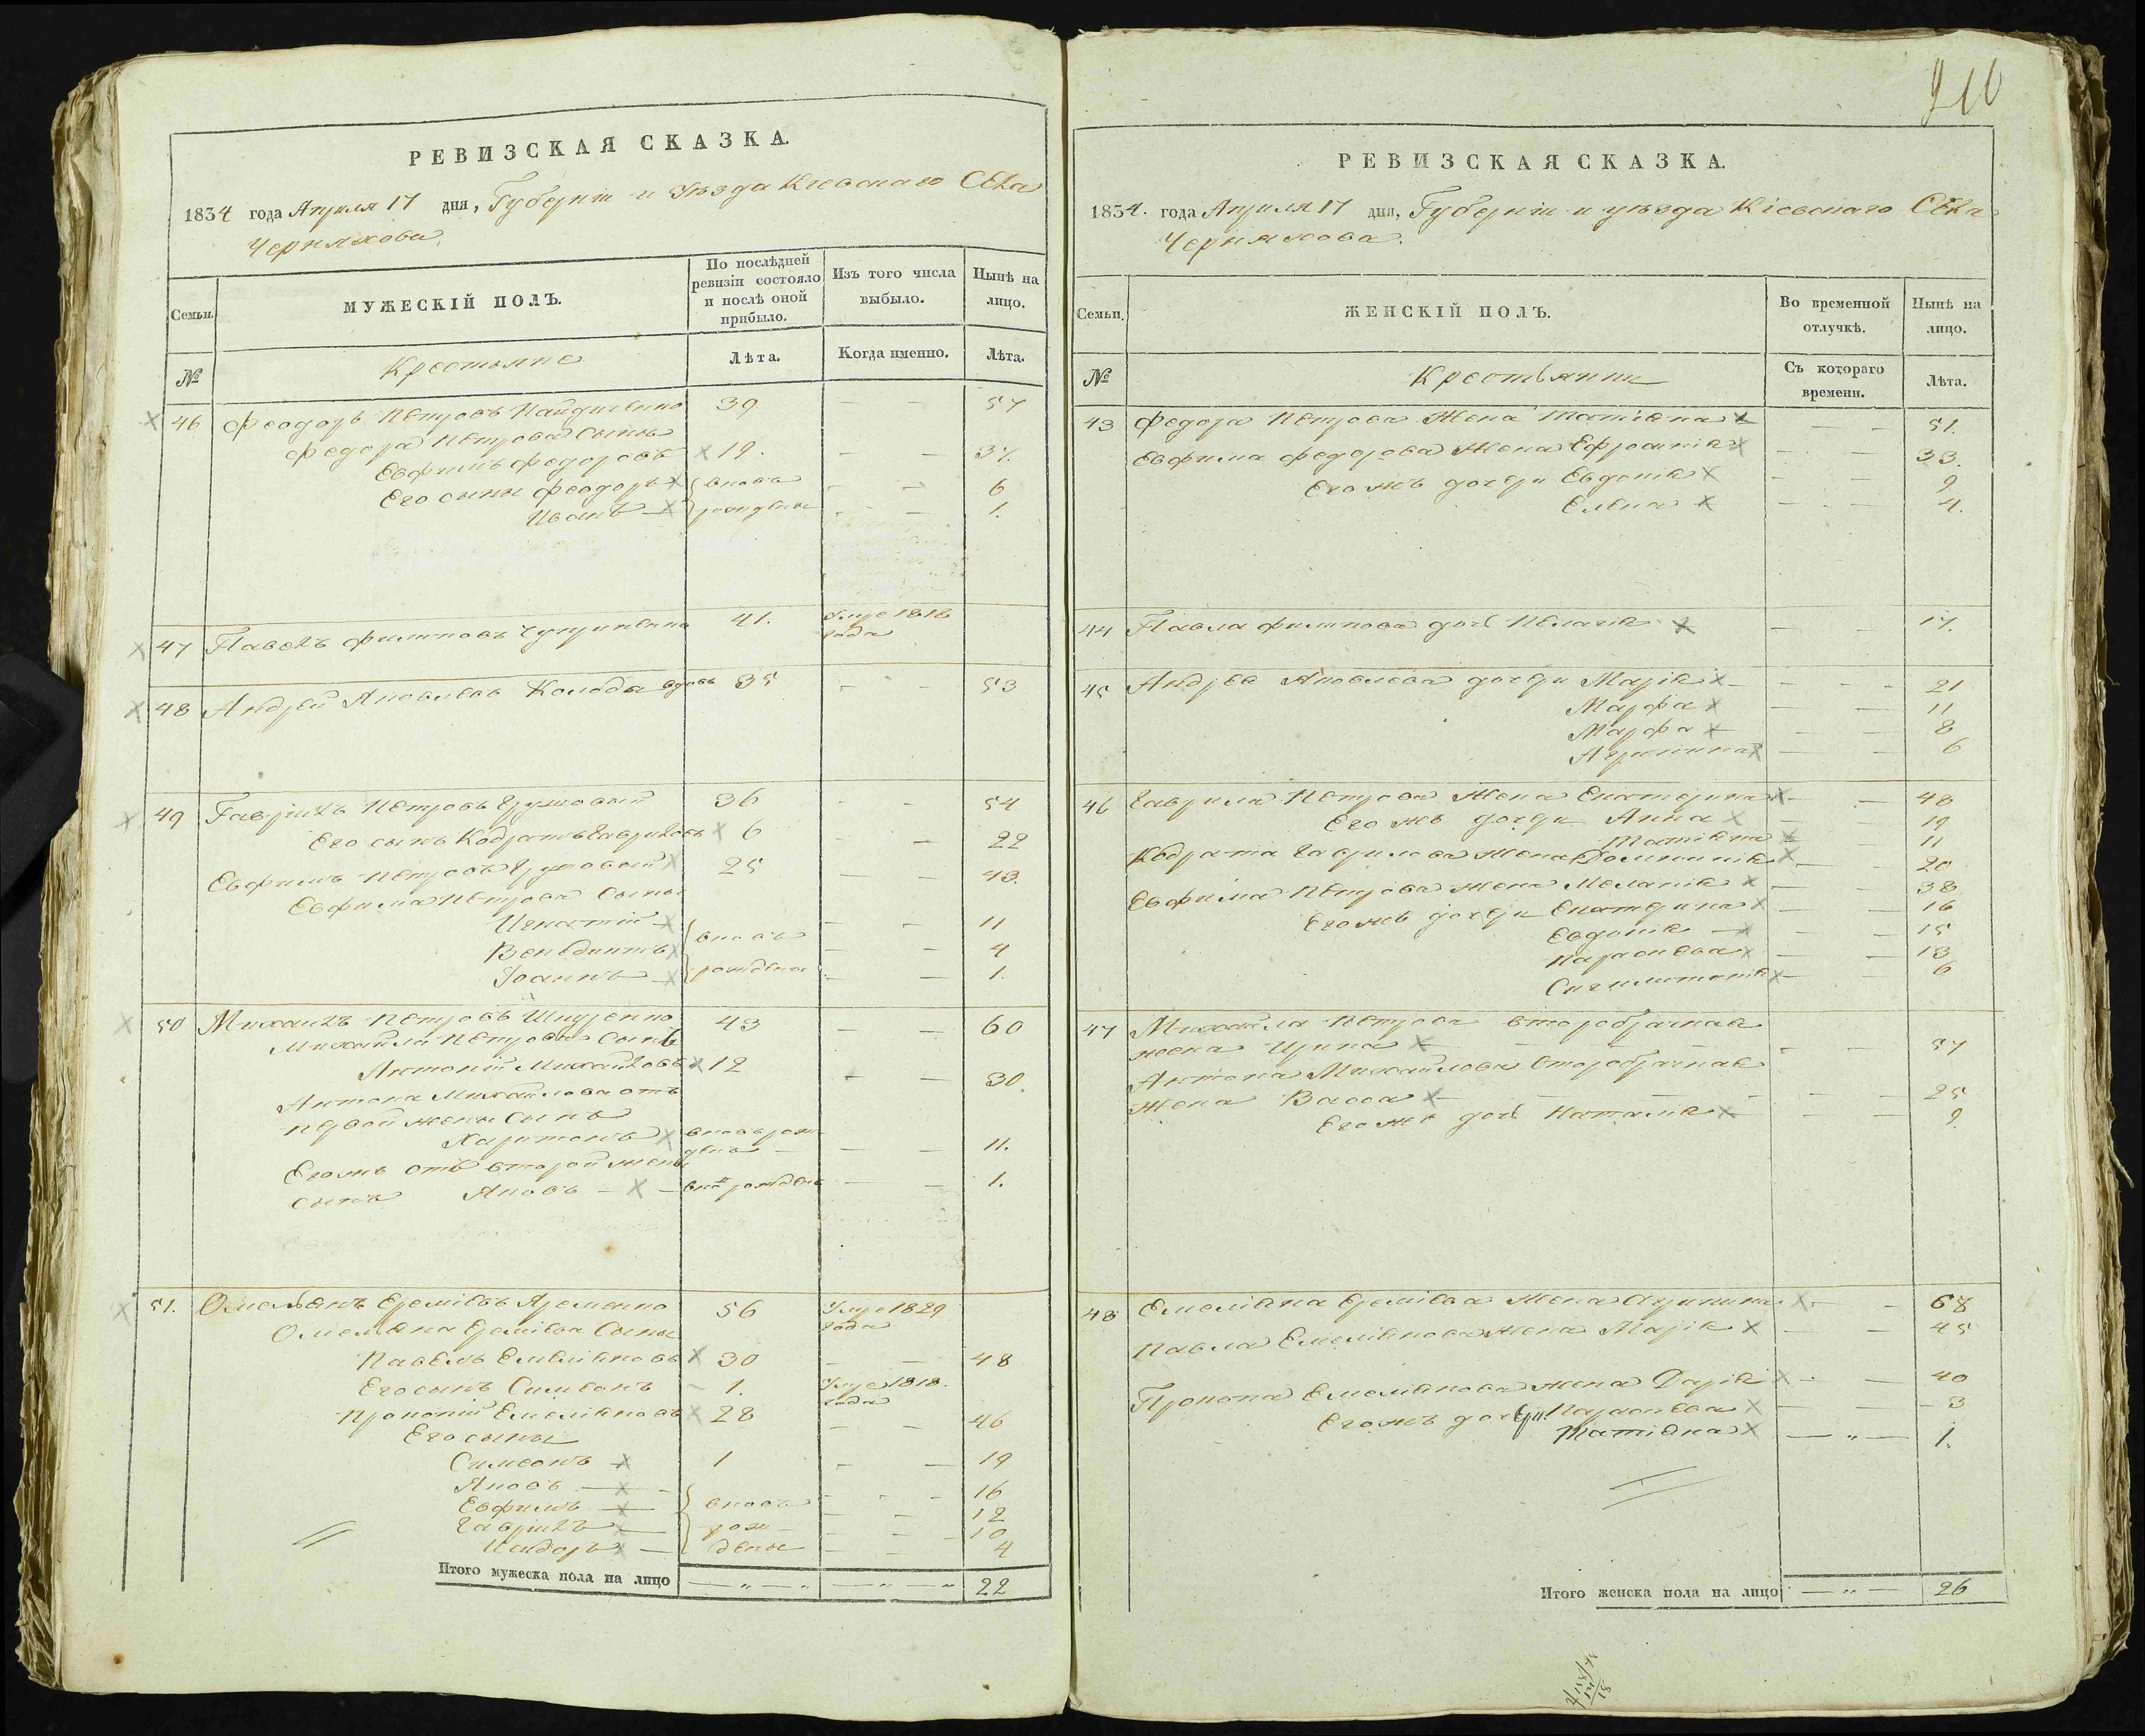 РЕВИЗСКАЯ СКАЗКА.
1834 года Апреля 17 дня, Губернiи и Уѣзда Кiевскаго Села
Черняхова.
Семьи.
МУЖЕСКІЙ ПОЛЪ.
По послѣдней ревизіи состояло и послѣ оной прибыло.
Изъ того числа выбыло.
Нынѣ на лицо.
№
Крестьяне
Лѣта.
Когда именно.
Лѣта.
46 Феодоръ Петровъ Найдиченко 39 — — 57
Федора Петрова Сынъ
Евфимъ Федоровъ × 19. — — 37.
Его сыны Феодоръ × вновь — — 6
Иванъ — × рождены — — 1.
47 Павелъ Филиповъ 41. Умре 1818
года
48 Андрей Яковлевъ Колода вдовъ 35 — — 53
49 Гавріилъ Петровъ Грузовый 36 — — 54
Его сынъ Кодратъ Гавриловъ × 6 — 22
Евфимъ Петровъ Грузовый × 25 — — 43.
Евфима Петрова Сыны
Игнатій × — — 11
Венедиктъ × вновь — — 4
Іоаннъ — × рождены — — 1.
50 Михаилъ Петровъ 43 — — 60
Михайла Петрова Сынъ
Антоній Михайловъ × 12 — — 30.
Антона Михайлова отъ
первой жены Сынъ
Харитонъ × вновь рож-
денъ — — — 11.
Егожъ отъ второй жены
сынъ Яковъ — × — рожденъ — — 1.
51. Омельянъ Еремѣевъ Яременко 56 Умре 1829
года
Омельяна Еремѣева Сыны
Павелъ Емеліяновъ × 30 — — 48
Его сынъ Симеонъ — 1. Умре 1818.
года
Прокопій Емеліяновъ × 28 — — 46
Его сыны
Симеонъ × 1 — — 19
Яковъ — × — — — — 16
Евфимъ — × — вновь — — 12
Гавріилъ × — рож — — 10
× — дены — — 4
Итого мужеска пола на лицо — „ — „ — „ — „ 22
РЕВИЗСКАЯ СКАЗКА.
1834. года Апреля 17 дня, Губернiи и уѣзда Кіевскаго Села
Черняхова.
Семьи.
ЖЕНСКІЙ ПОЛЪ.
Во временной отлучкѣ.
Нынѣ на лицо.
№
Крестьянки
Съ котораго времени.
Лѣта.
43 Федора Петрова Жена Татіяна × — — 51.
Евфима Федорова Жена Ефросинія × — — 33.
Его жъ дочери Евдокія × — — 9
Елена × — — 4.
44 Павла Филипова дочь Пелагія × — — 17.
45 Андрея Яковлева дочери Марія × — — — 21
Марфа × — — 11
Марфа × — — 8
Агрипина × — — 6
46 Гаврила Петрова Жена Екатерина × — — 48
Его жъ дочери Анна × — — 19
Татіяна × 11
Кодрата Гаврилова жена Домникія × — — 20
Евфима Петрова жена Меланія × — — 38
Его жъ дочери Екатерина × — — 16
Евдокія — × — — 15
Параскева × — — 13
× — — 6
47 Михайла Петрова второбрачная
жена Ирина × — — — 57
Антона Михайлова второбрачная
Жена Васса × — — — 25
Его жъ дочь Наталія × — — 9.
48 Емеліяна Еремѣева Жена × — — 67
Павла Емеліянова жена Марія × — — 45
Прокопа Емеліянова жена Дарія × — — 40
Его жъ дочери Параскева × — — 3
Татіяна × — „ — 1.
Итого женска пола на лицо — „ — 26